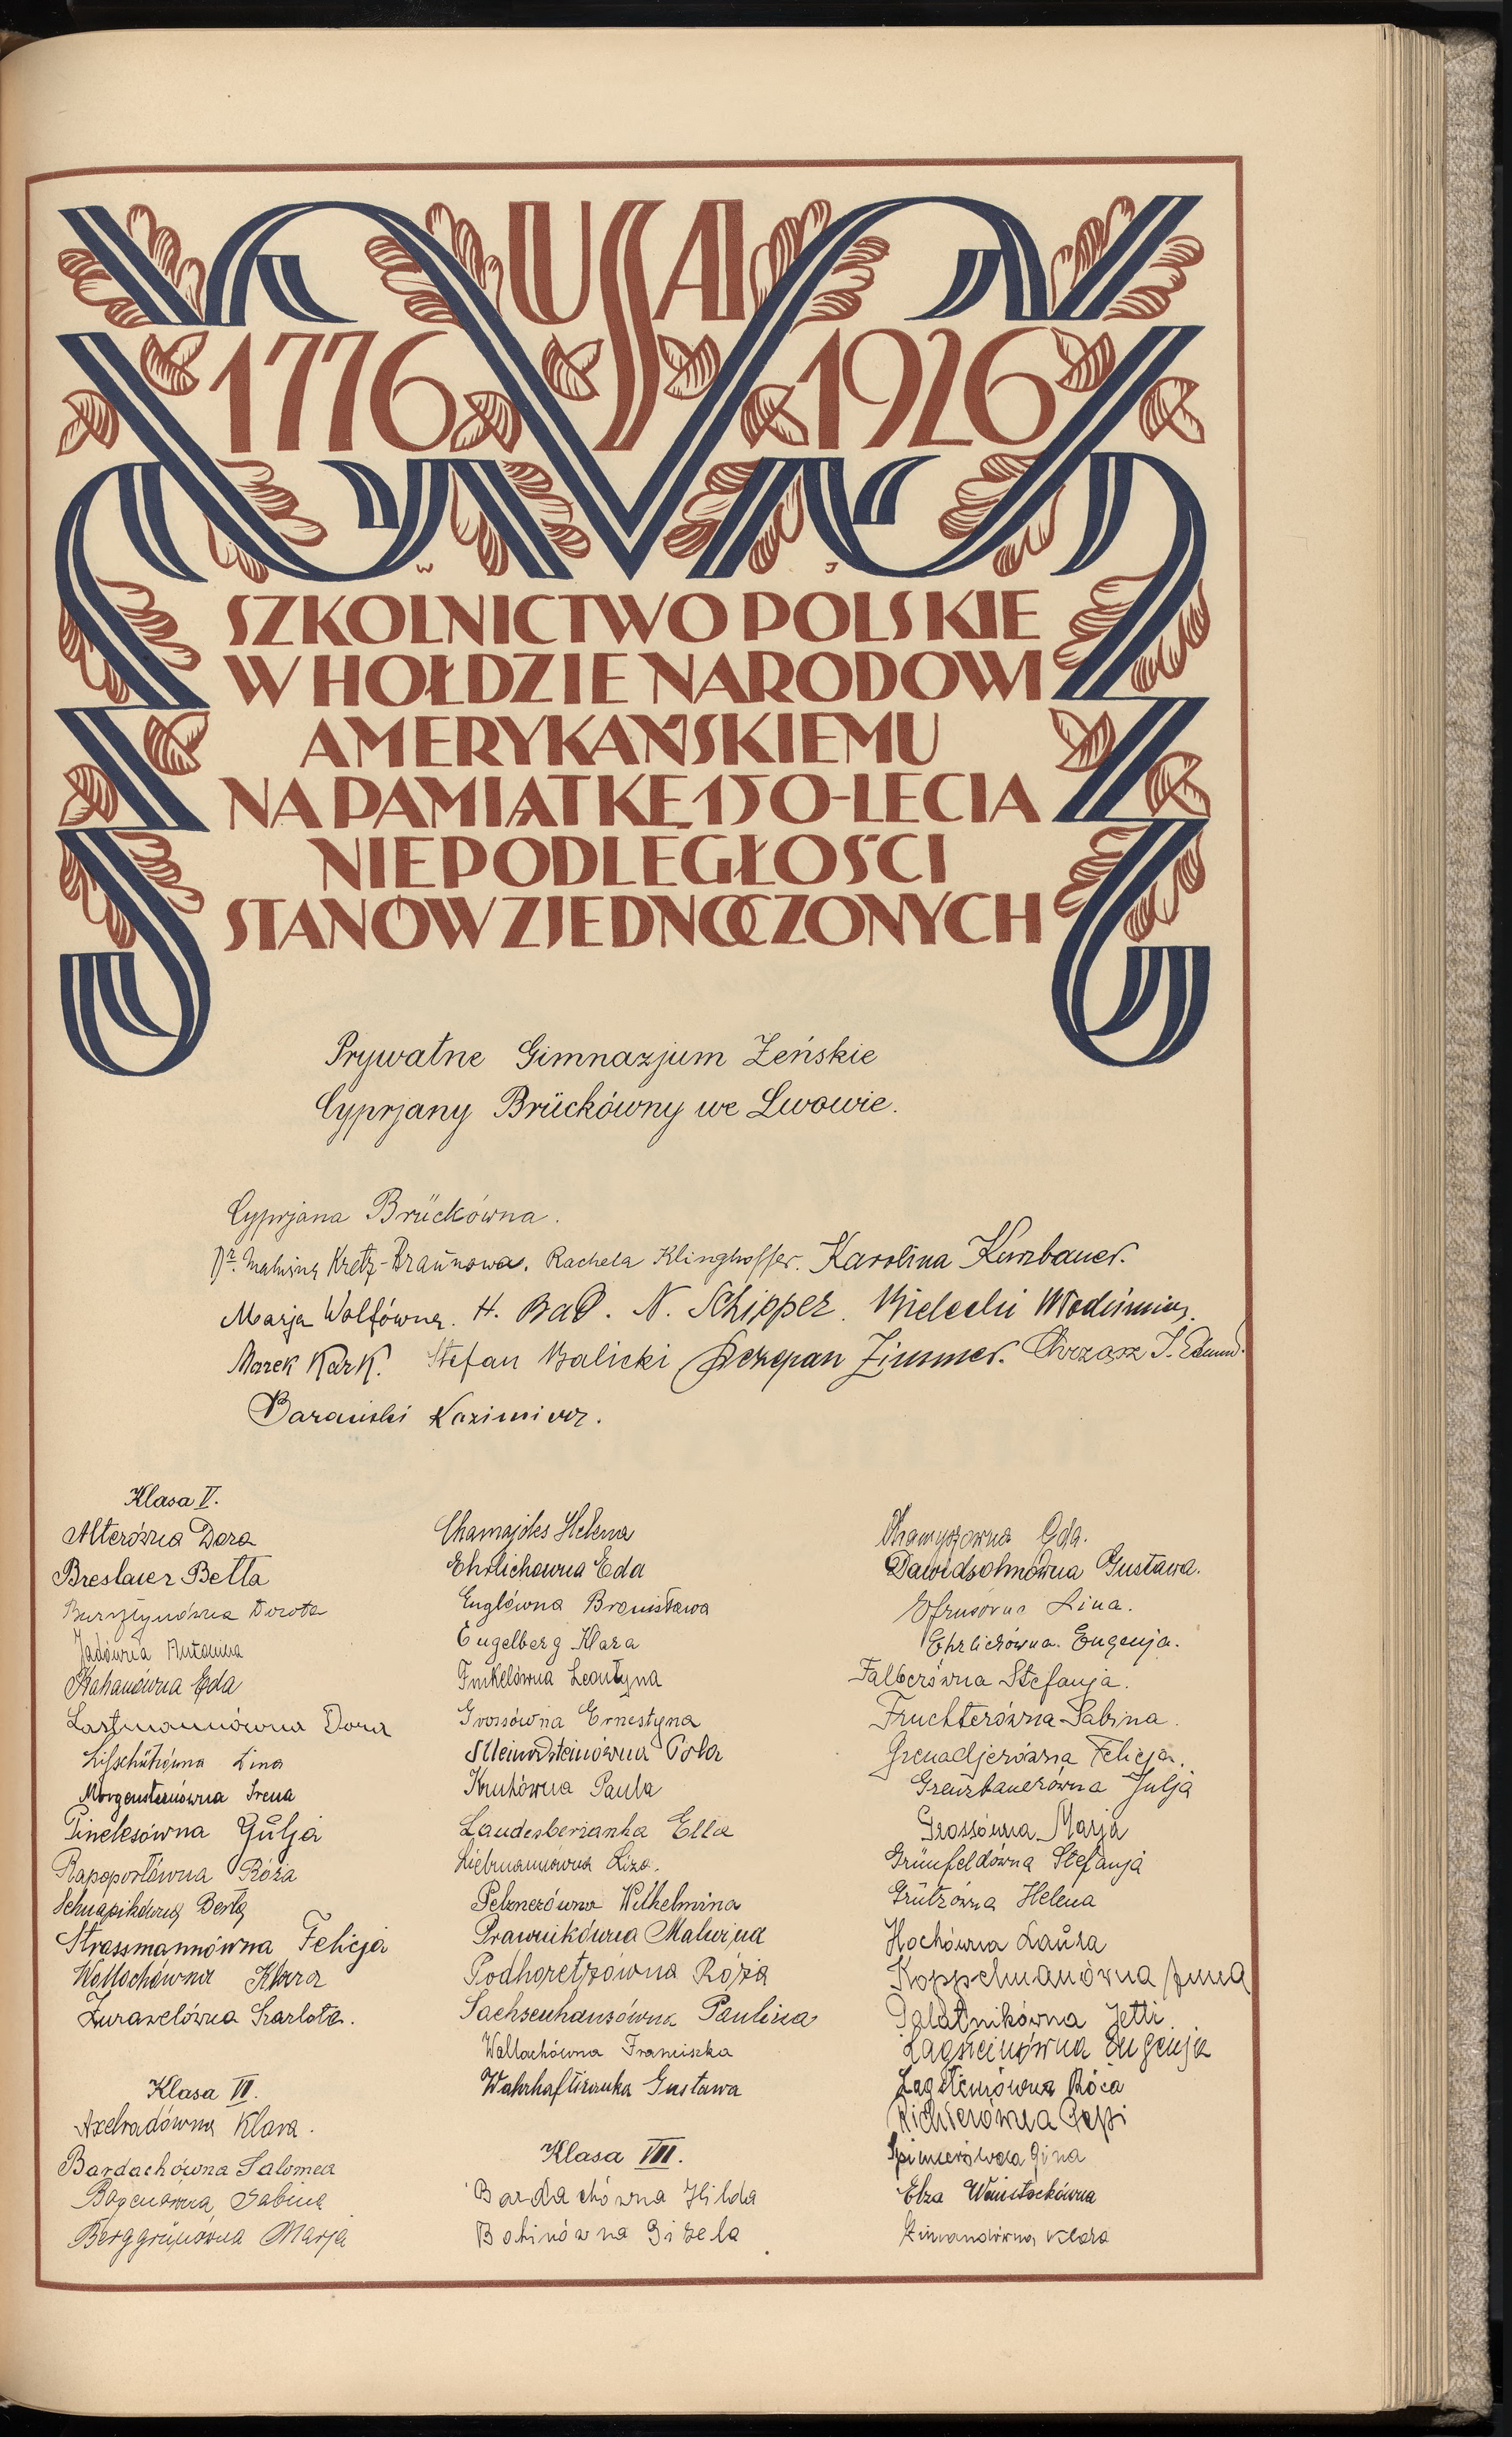 USA
1776 1926
W J
SZKOLNICTWO POLSKIE
W HOŁDZIE NARODOWI
AMERYKAŃSKIEMU
NA PAMIĄTKĘ 150-LECIA
NIEPODLEGŁOŚCI
STANÓW ZJEDNOCZONYCH
Prywatne Gimnazjum Żeńskie
Cyprjany Brückówny we Lwowie.
Cyprjana Brückówna.
Dr. Malwina Kretz-Braunowa. Rachela Klinghoffer. Karolina Kurzbauer.
Marja Wolfówna. H. Bad. N. Schipper. Bielecki Włodzimierz.
Marek Kark. Stefan Balicki Szczepan Zimmer. Chrząsz J. Edmund.
Barański Kazimierz.
Klasa V.
Alterówna Dora
Breslauer Betta
Bursztynówna Dorota
Jadówna Antonina
Kahanówna Eda
Lastmannówna Dora
Lifschützówna Lina
Morgensternówna Irena
Pinelesówna Gulja
Rapoportówna Róża
Schnapikówna Berta
Strassmannówna Felicja
Wallachówna Klara
Żurawelówna Szarlota.
Klasa VI.
Axelradówna Klara.
Bardachówna Salomea
Sabina
Berggrünówna Marja
Chamajdes Helena
Ehrlichówna Eda
Englówna Bronisława
Engelberg Klara
Finkelówna Leontyna
Grossówna Ernestyna
Kleinwsteinówna Pola
Krutówna Paula
Landesberżanka Ella
Liebmanówna Liza.
Pelznerówna Wilhelmina
Prawnikówna Malwina
Podhoretzówna Róża
Sachsenhausówna Paulina
Wallachówna Franciszka
Wahrhaftiżanka Gustawa
Klasa VIII.
Bardachówna Hilda
Botinówna Gizela
Eda.
Dawidsohnówna Gustawa.
Efrusówna Lina.
Ehrlichówna. Eugenja.
Falberówna Stefanja.
Fruchterówna Sabina.
Grenadjerówna Felicja.
Grenzbauerówna Julja
Grossówna Marja
Grünfeldówna Stefanja
Grützówna Helena
Hochówna Laura
Koppelmanówna Anna
Palatnikówna Jetti.
Eugenja
Róża
Richterówna Pepi
Gina
Elza Weinstockówna
Zimandówna Klara